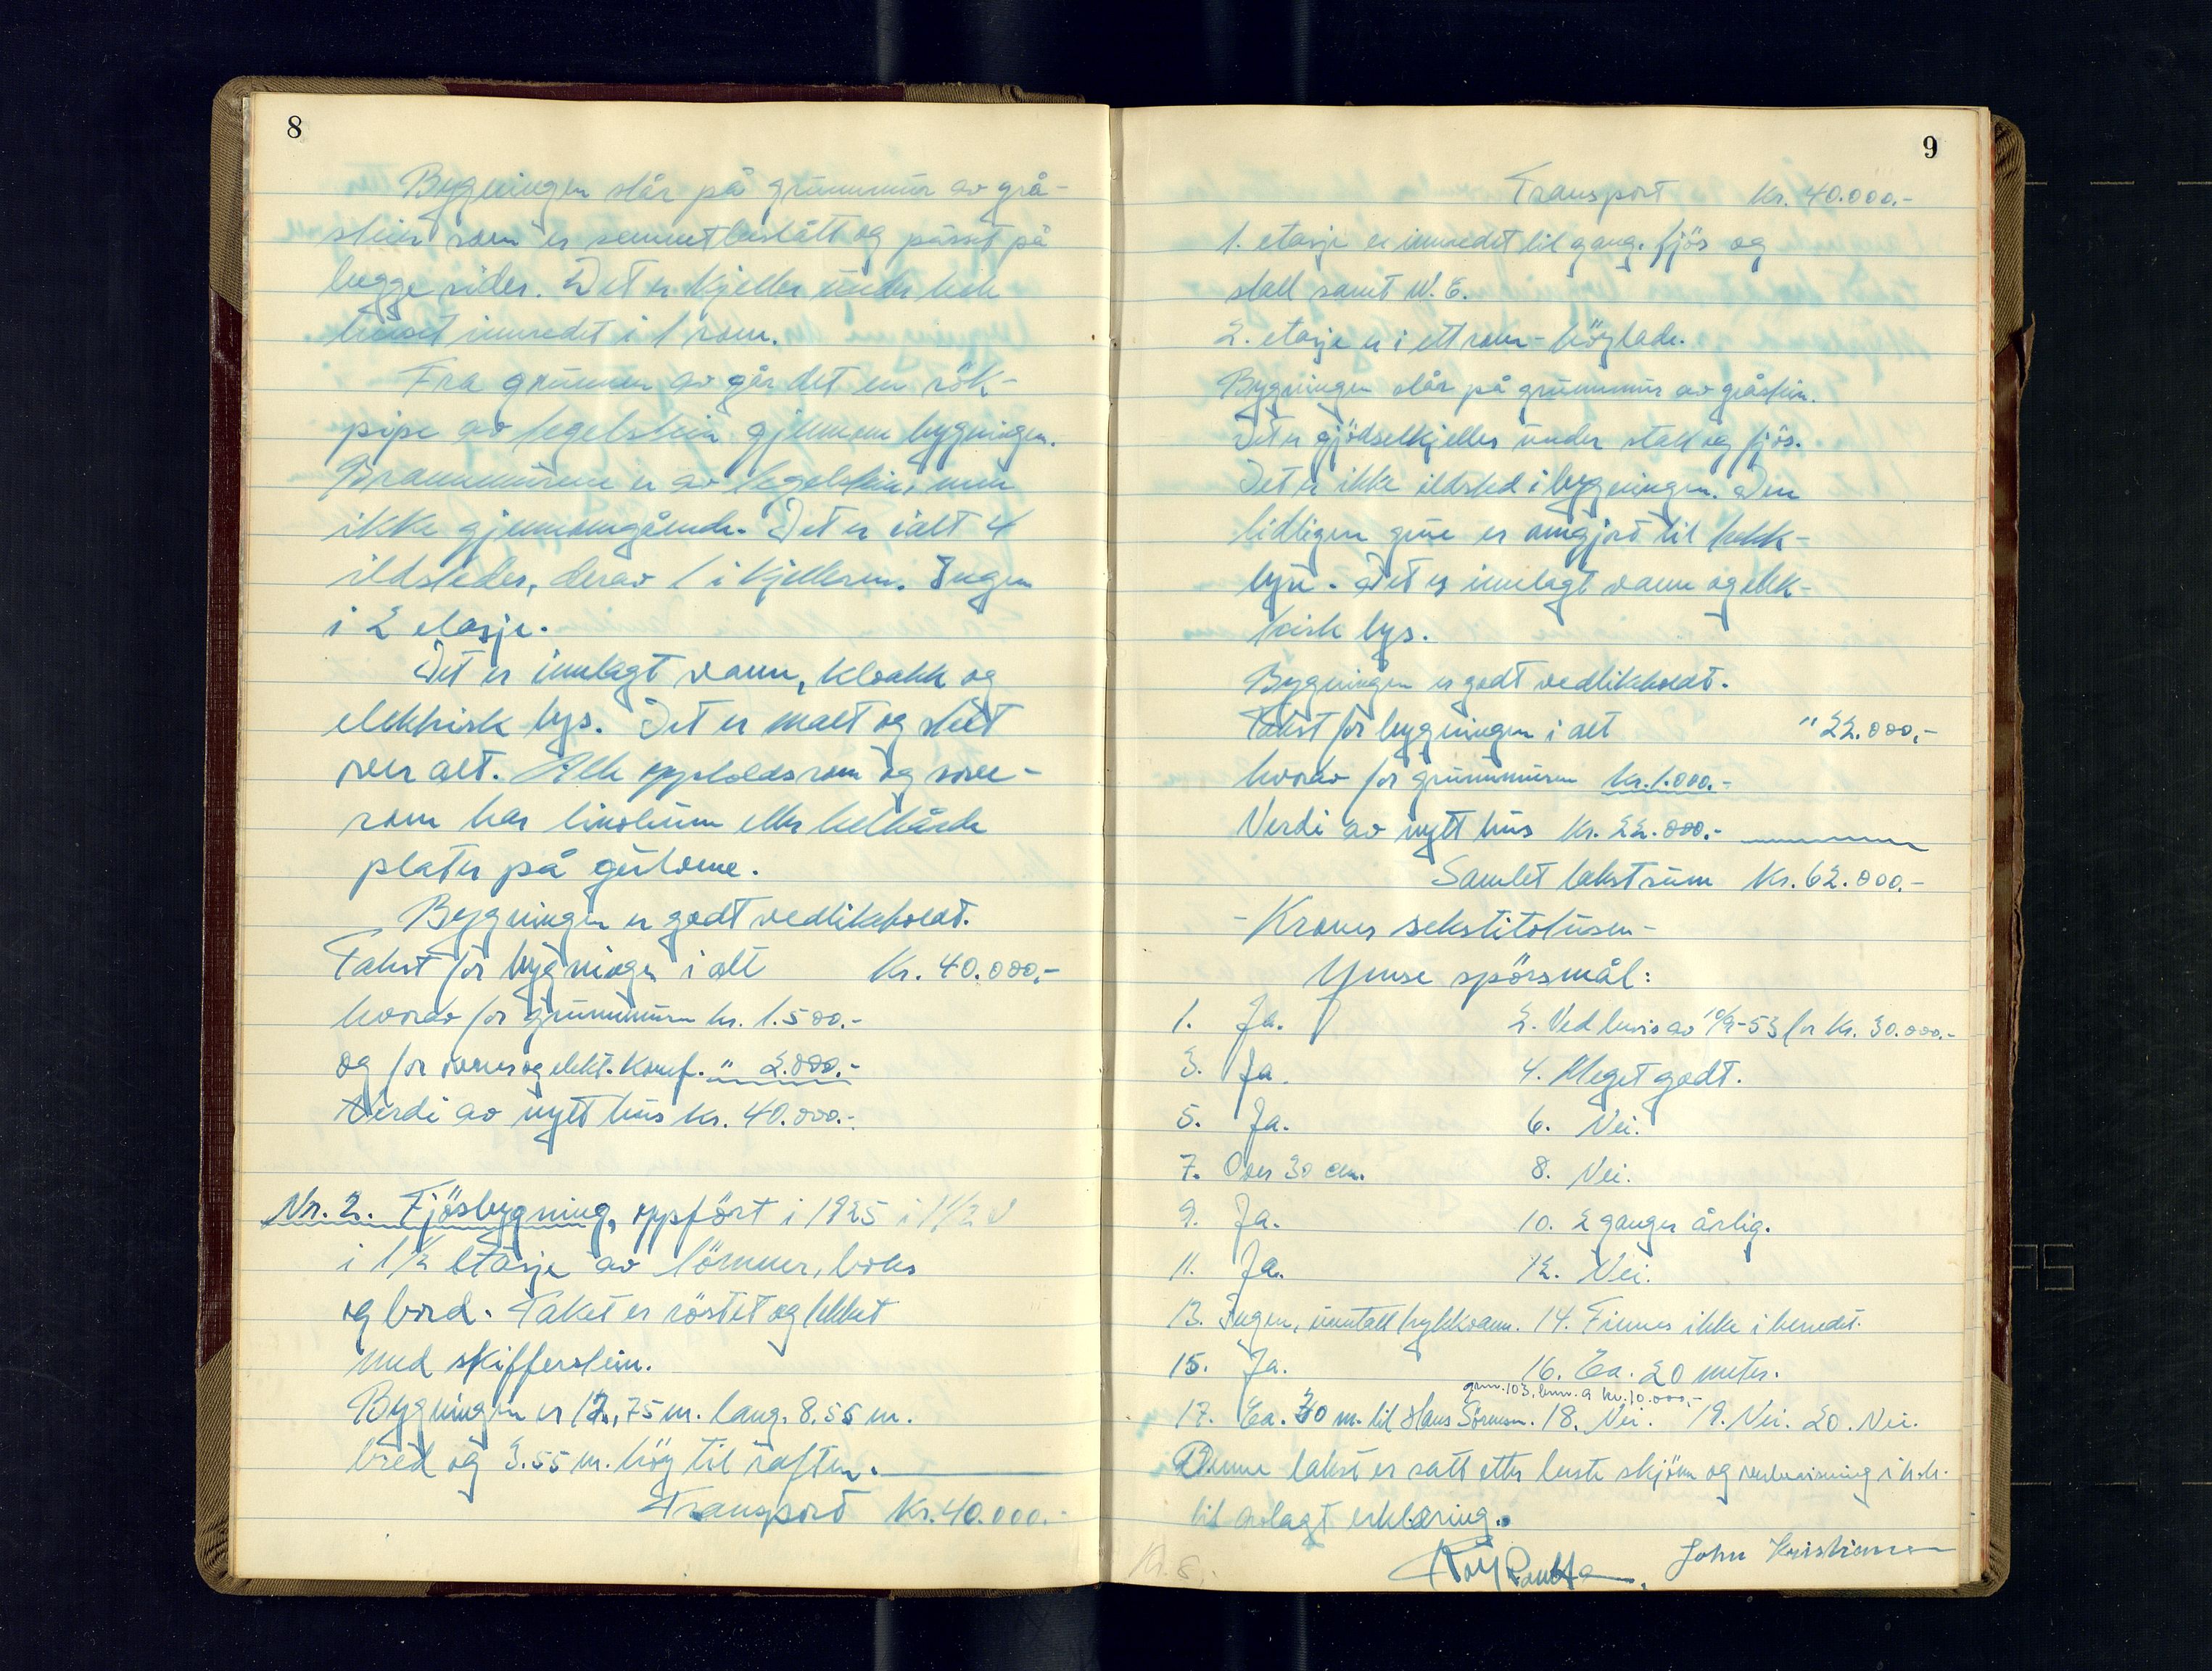 8
Bygningen står på grunnmur av grå-
stein som er sementbeslått og pusset på
begge sider. Det er kjeller under hele
huset innredet i 1 rom.
Fra grunnen av går det en rök-
pipe av teglstein gjennem bygningen.
Brannmuren er av teglstein, men
ikke gjennomgående. Det er ialt 4
ildsteder, derav 1 i kjelleren. Ingen
i 2 etasje.
Det er innlagt vann, kloakk og
elektrisk lys. Det er malt og
over alt. Alle oppholdsrom og sove-
rom har linoleum eller helhårde
plater på gulvene.
Bygningen er godt vedlikeholdt.
Takst for bygningen i alt Kr. 40.000,-
hvorav for grunnmuren kr. 1.500.-
og for og elekt. komf. " 2.000.-
Verdi av nytt hus kr. 40.000.-
Nr. 2. Fjösbygning, oppfört i 1925 i 1 1/2
i 1 1/2 etasje av tömmer,
og bord. Taket er röstet og tekket
med skifferstein.
Bygningen er 12,75 m. lang. 8.55 m.
bred og 3.55 m. höy til raften.
Transport Kr. 40.000.-
9
Transport Kr. 40.000.-
1. etasje er innredet til gang, fjös og
stall samt W.C.
2. etasje er i ett rom - höylade.
Bygningen står på grunnmur av gråstein.
Det er gjödselkjeller under stall og fjös.
Det er ikke ildsted i bygningen. Den
tidligere grue er omgjort til

Det er innlagt vann og elek-
trisk lys.
Bygningen er godt vedlikeholdt.
Takst for bygningen i alt " 22.000,-
hvorav for grunnmuren kr. 1.000.-
Verdi av nytt hus kr. 22.000.-
Samlet takstsum Kr. 62.000.-
- Kroner sekstitotusen -
Ymse spörsmål:
1. Ja. 2. Ved brevis av 10/9-53 for Kr. 30.000.-
3. Ja. 4. Meget godt.
5. Ja. 6. Nei.
7. Over 30 cm. 8. Nei.
9. Ja. 10. 2 ganger årlig.
11. Ja. 12. Nei.
13. Ingen, unntatt trykkvann. 14. Finnes ikke i herredet.
15. Ja. 16. Ca. 20 meter.
gnr. 103, bnr. 9 kr. 10.000,-
17. Ca. 30 m. til Hans Sörensen. 18. Nei. 19. Nei. 20. Nei.
Denne takst er satt etter beste skjönn og i h.h.
til avlagt erklæring.
John Kristiansen
Kr. 8,-